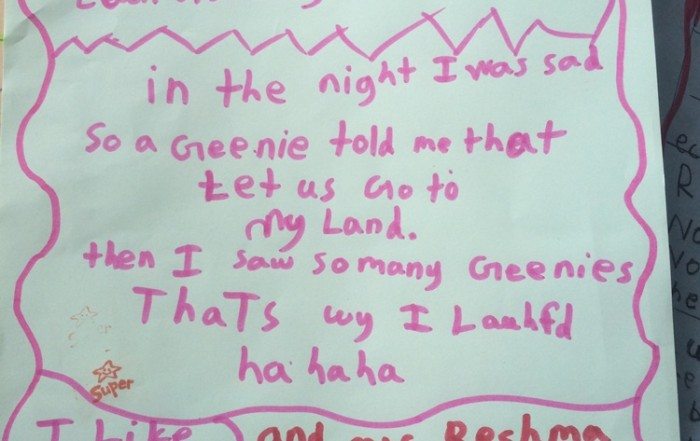 in the night I was sad
So a Geenie told me that
Let us Go to
My Land.
then I saw so many Geenies
ThaTs wy I Lauhfd
ha ha ha
Super
I Like and Reshma